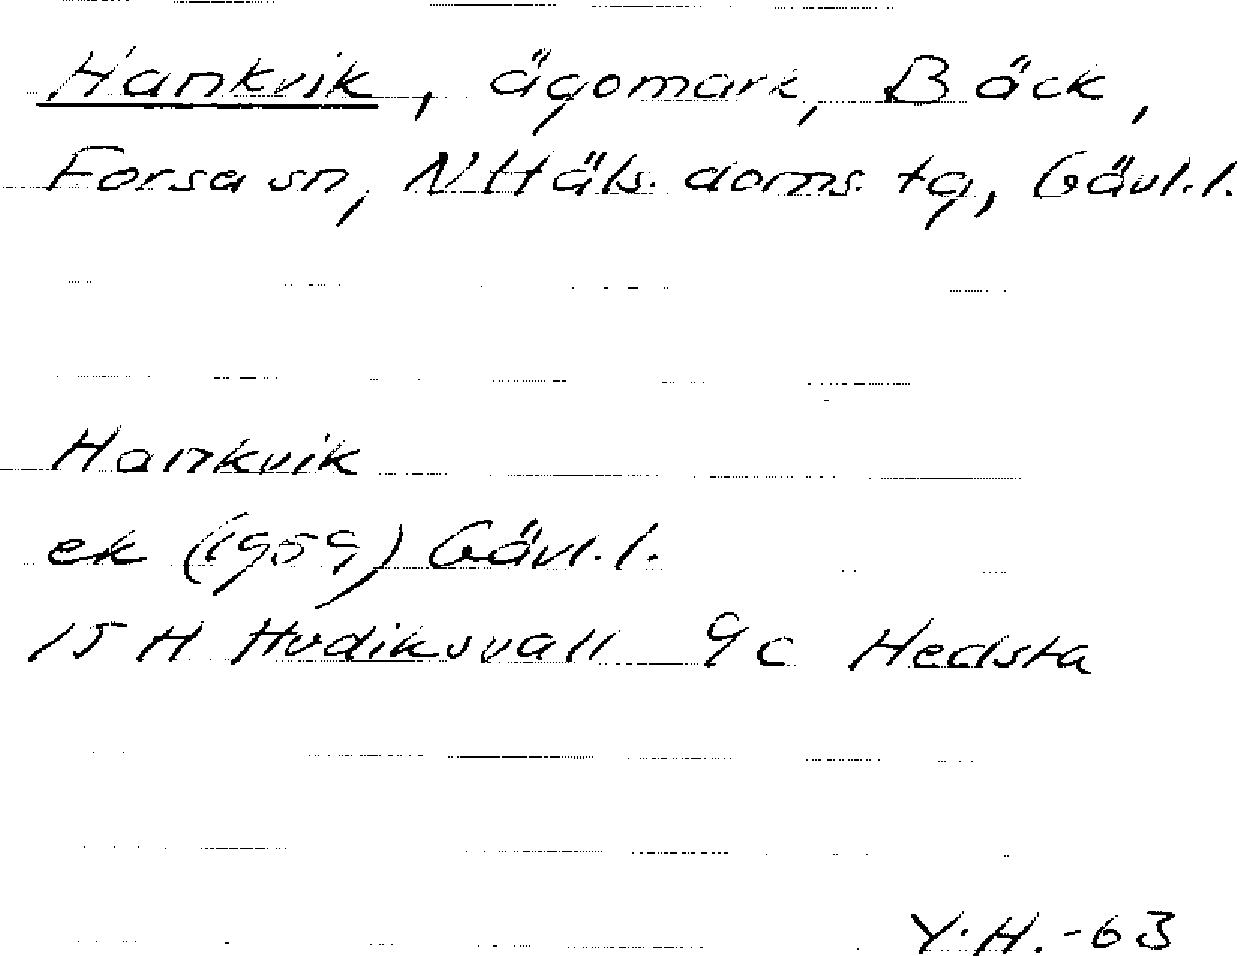 Hankvik, ägomark, Bäck,
Forsa sn, N Häls. doms. tg, Gävl.l.
Hankvik
ek (1959) Gävl.l.
15 H Hudiksvall 9c Hedsta
Y.H.-63